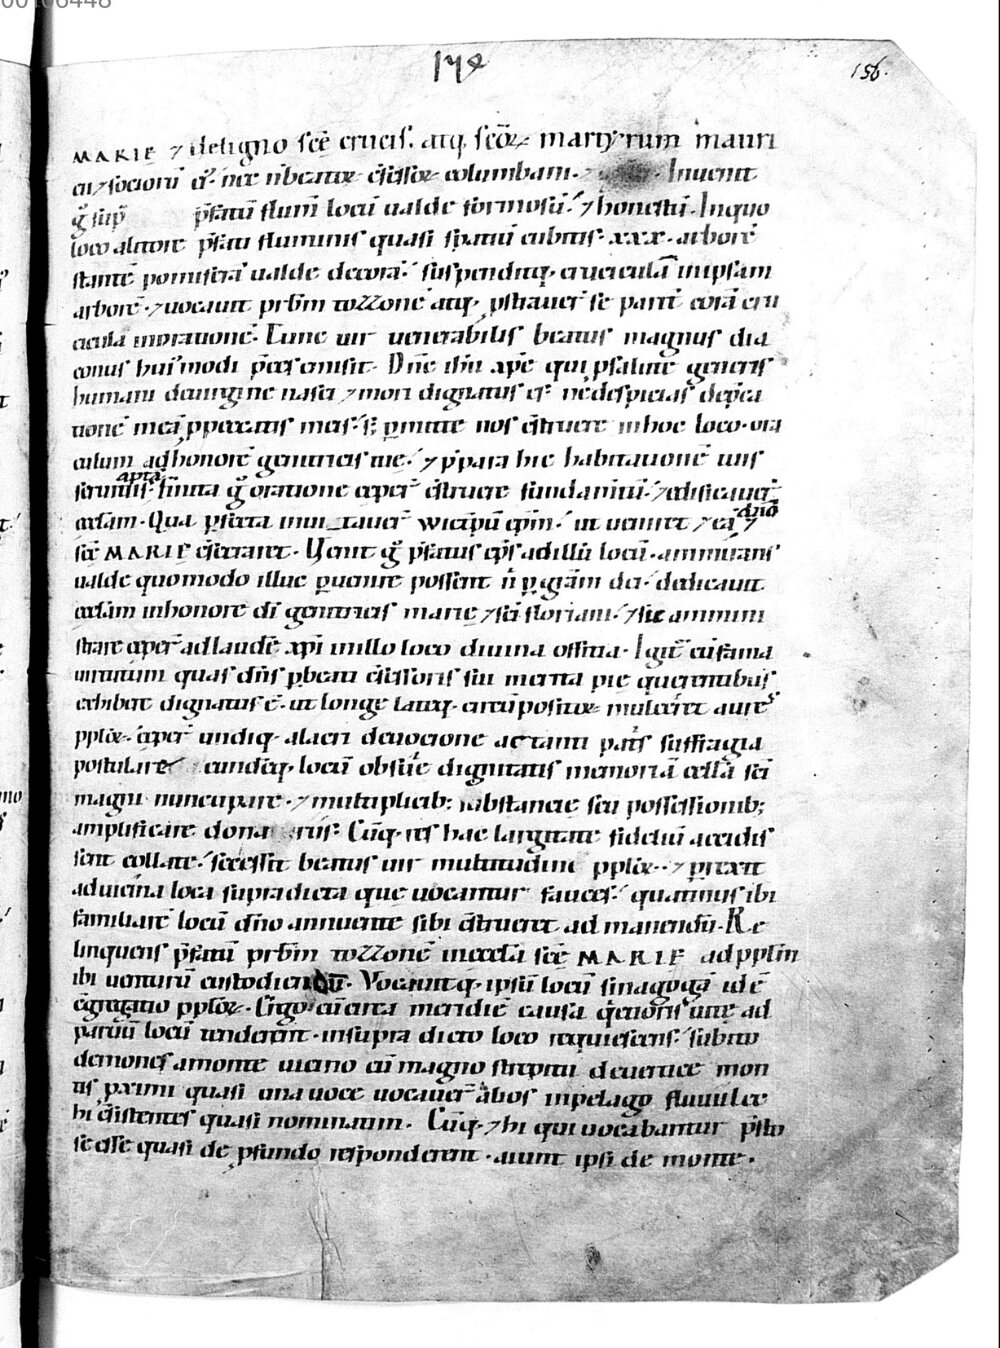 00106448
174
156.
MARIE ⁊ deligno scē crucis. atq; scōꝝ martyrum mauri
cii ⁊ socioru q̄. nec n̄ beatoꝝ c̄fessoꝝ columbani. ⁊ Inuenit
g̊ sup̄ p̄fatū flum̄ locū ualde formosū. ⁊ honestū. Inquo
loco altiore p̄fati fluminis quasi spatiū cubitis. xxx. arborē
stantē pomiferā ualde decorā. suspenditq; cruciculā inipsam
arborē. ⁊ uocauit prb̄m tozzonē atq; p̄strauer̄ se parit̄ corā cru
cicula inoratione. Tunc uir uenerabilis beatus magnus dia
conus hui'modi p̄ces emisit. Dn̄e ih̄u xp̄e qui p̄salute generis
humani deuirgine nasci ⁊ mori dignatus es. ne despicias dep̄ca
tionē meā p̄ peccatis meis. s; p̄mitte nos c̄struere inhoc loco. ora
culum adhonorē genitricis tuę. ⁊ p̄para hic habitationē tuis
seruitiis apta. finita g̊ oratione ceper̄ c̄struere fundamtū. ⁊ edificauer̄
ecclam. Qua p̄fecta inuitauer̄ wictpū ep̄m. ut ueniret ⁊ eā dn̄o ⁊
scē MARIE c̄secraret. Uenit g̊ p̄fatus ep̄s adillū locū. ammirans
ualde quomodo illuc p̄uenire possent n̄ p̄ grām dei. dedicauit
ecclam inhonore dī genitricis marie ⁊ sci floriani. ⁊ sic ammini
strare ceper̄ adlaudē xp̄i inillo loco diuina officia. Igit̄ cū fama
uirtutum quas dn̄s p̄ beati c̄fessoris sui merita pie querentibus
exhibere dignatus ē. ut longe lateq; circūpositoꝝ mulceret aures
pploꝝ. ceper̄ undiq; alacri deuocione ac tanti patris suffragia
postulare eundēq; locū obsue dignitatis memoriā cellā sci
magni nuncupare. ⁊ multiplicib; substancie seu possessionib;
amplificare donariis. Cūq; res hac largitate fideliū accidis
sent collate. secessit beatus uir multitudine pploꝝ. ⁊ p̄rexit
aduicina loca supradicta que uocantur fauces. quatinus ibi
familiarē locū dn̄o annuente sibi c̄strueret ad manendū. Re
linquens p̄fatū prb̄m tozzonē inecclā scē MARIE adpplm
ibi uenturū custodiendū. Vocauitq; ipsū locū sinagogā id ē
c̄gregatio pploꝝ. Ergo cū circa meridiē causa q̄rentis iter ad
paruū locū tenderent. insupra dicto loco requiescens. subito
demones amonte uicino cū magno strepitu deuertice mon
tis p̄ximi quasi una uoce uocauer̄ alios inpelago fluuii lici
hi c̄sistentes quasi nominatim. Cūq; ⁊ hi qui uocabantur p̄sto
se esse quasi de p̄fundo responderent. aiunt ipsi de monte.